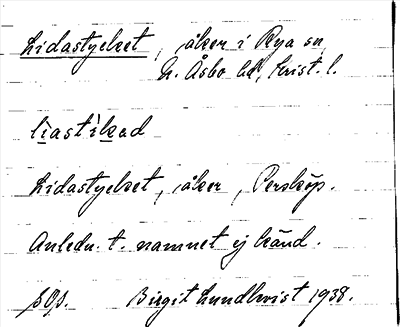 Lidastycket, åker i Rya sn,
N. Åsbo hd, Krist. l.
Lidastycket, åker, Perstorp.
Anledn. t. namnet ej känd.
Birgit Lundkvist 1938.